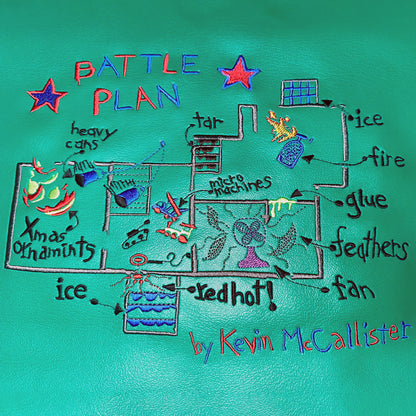 BATTLE
PLAN
heavy
cans
tar
ice
fire
micro
machines
glue
Xmas
ornamints
feathers
ice
red hot!
fan
by Kevin McCallister